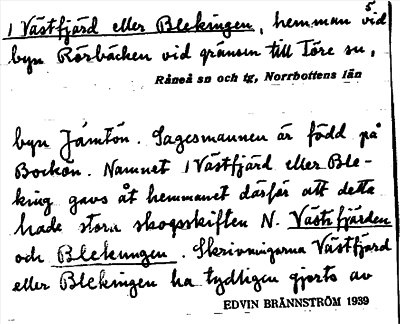 5.
1 Västfjärd eller Blekingen, hemman vid
byn Rörbäcken vid gränsen till Töre sn,
Råneå sn och tg, Norrbottens län
byn Jämtön. Sagesmannen är född på
Bockön. Namnet 1 Västfjärd eller Ble-
king gavs åt hemmanet därför att detta
hade stora skogsskiften N. Västfjärden
och Blekningen. Skrivningarna Västfjärd
eller Blekingen ha tydligen gjorts av
EDVIN BRÄNNSTRÖM 1939